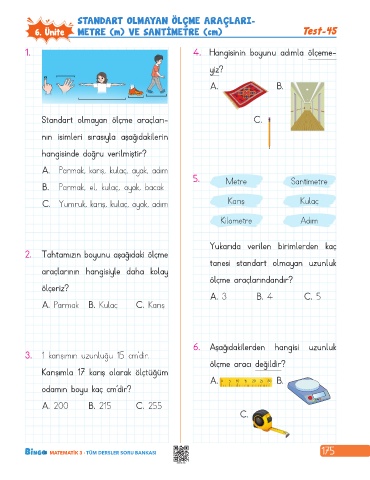 6. Ünite
STANDART OLMAYAN ÖLÇME ARAÇLARI-
METRE (m) VE SANTİMETRE (cm)
Test-45
1.
Standart olmayan ölçme araçları-
nın isimleri sırasıyla aşağıdakilerin
hangisinde doğru verilmiştir?
A. Parmak, karış, kulaç, ayak, adım
B. Parmak, el, kulaç, ayak, bacak
C. Yumruk, karış, kulaç, ayak, adım
2. Tahtamızın boyunu aşağıdaki ölçme
araçlarının hangisiyle daha kolay
ölçeriz?
A. Parmak B. Kulaç C. Karış
3. 1 karışımın uzunluğu 15 cm'dir.
Karışımla 17 karış olarak ölçtüğüm
odamın boyu kaç cm'dir?
A. 200 B. 215 C. 255
4. Hangisinin boyunu adımla ölçeme-
yiz?
A. B.
C.
5.
Metre Santimetre
Karış Kulaç
Kilometre Adım
Yukarıda verilen birimlerden kaç
tanesi standart olmayan uzunluk
ölçme araçlarındandır?
A. 3 B. 4 C. 5
6. Aşağıdakilerden hangisi uzunluk
ölçme aracı değildir?
A. B.
C.
BİNGO MATEMATİK 3 - TÜM DERSLER SORU BANKASI
175